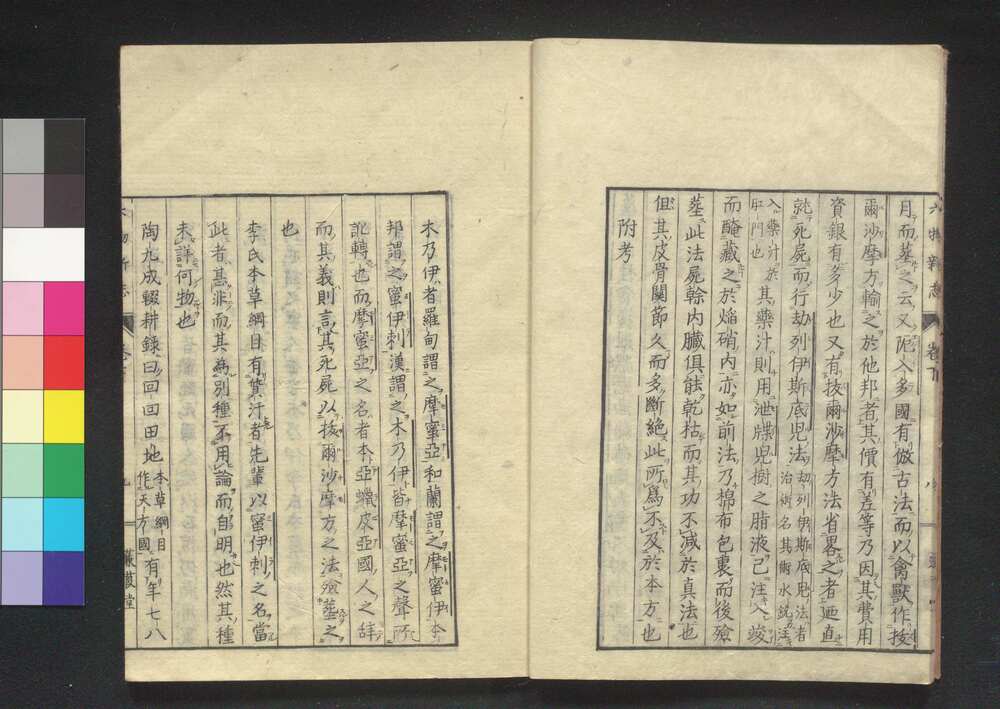 六物新志 卷下
月而墓之云又阨入多國有倣古法而以禽獸作拔
爾沙摩方輸之於他邦者其價有差等乃因其費用
資銀有多少也又有拔爾沙摩方法省畧之者迺直
就死屍而行劫列伊斯底兒法劫列伊斯底兒法者治術名其術水銃注
入藥汁於肛門也其藥汁則用泄牒兒樹之脂液已注入竣
而醃藏之於焔硝内亦如前法乃棉布包裹而後殮
墓此法屍幹内臟俱能乾枯而其功不減於真法也
但其皮骨關節久而多斷絶此所爲不及於本方也
附考
木乃伊者羅甸謂之摩蜜亞和蘭謂之摩蜜伊本
邦謂之蜜伊刺漢謂之木乃伊皆摩蜜亞之聲所
訛轉也而摩蜜亞之名者本亞蠟皮亞國人之辞
而其義則言其死屍以拔爾沙摩方之法殮墓之
也
李氏本草綱目有質汗者先輩以蜜伊刺之名當
此者甚非而其為別種不用論而自明也然其種
未詳何物也
陶九成輟耕錄曰回回田地本草綱目作天方國有年七八